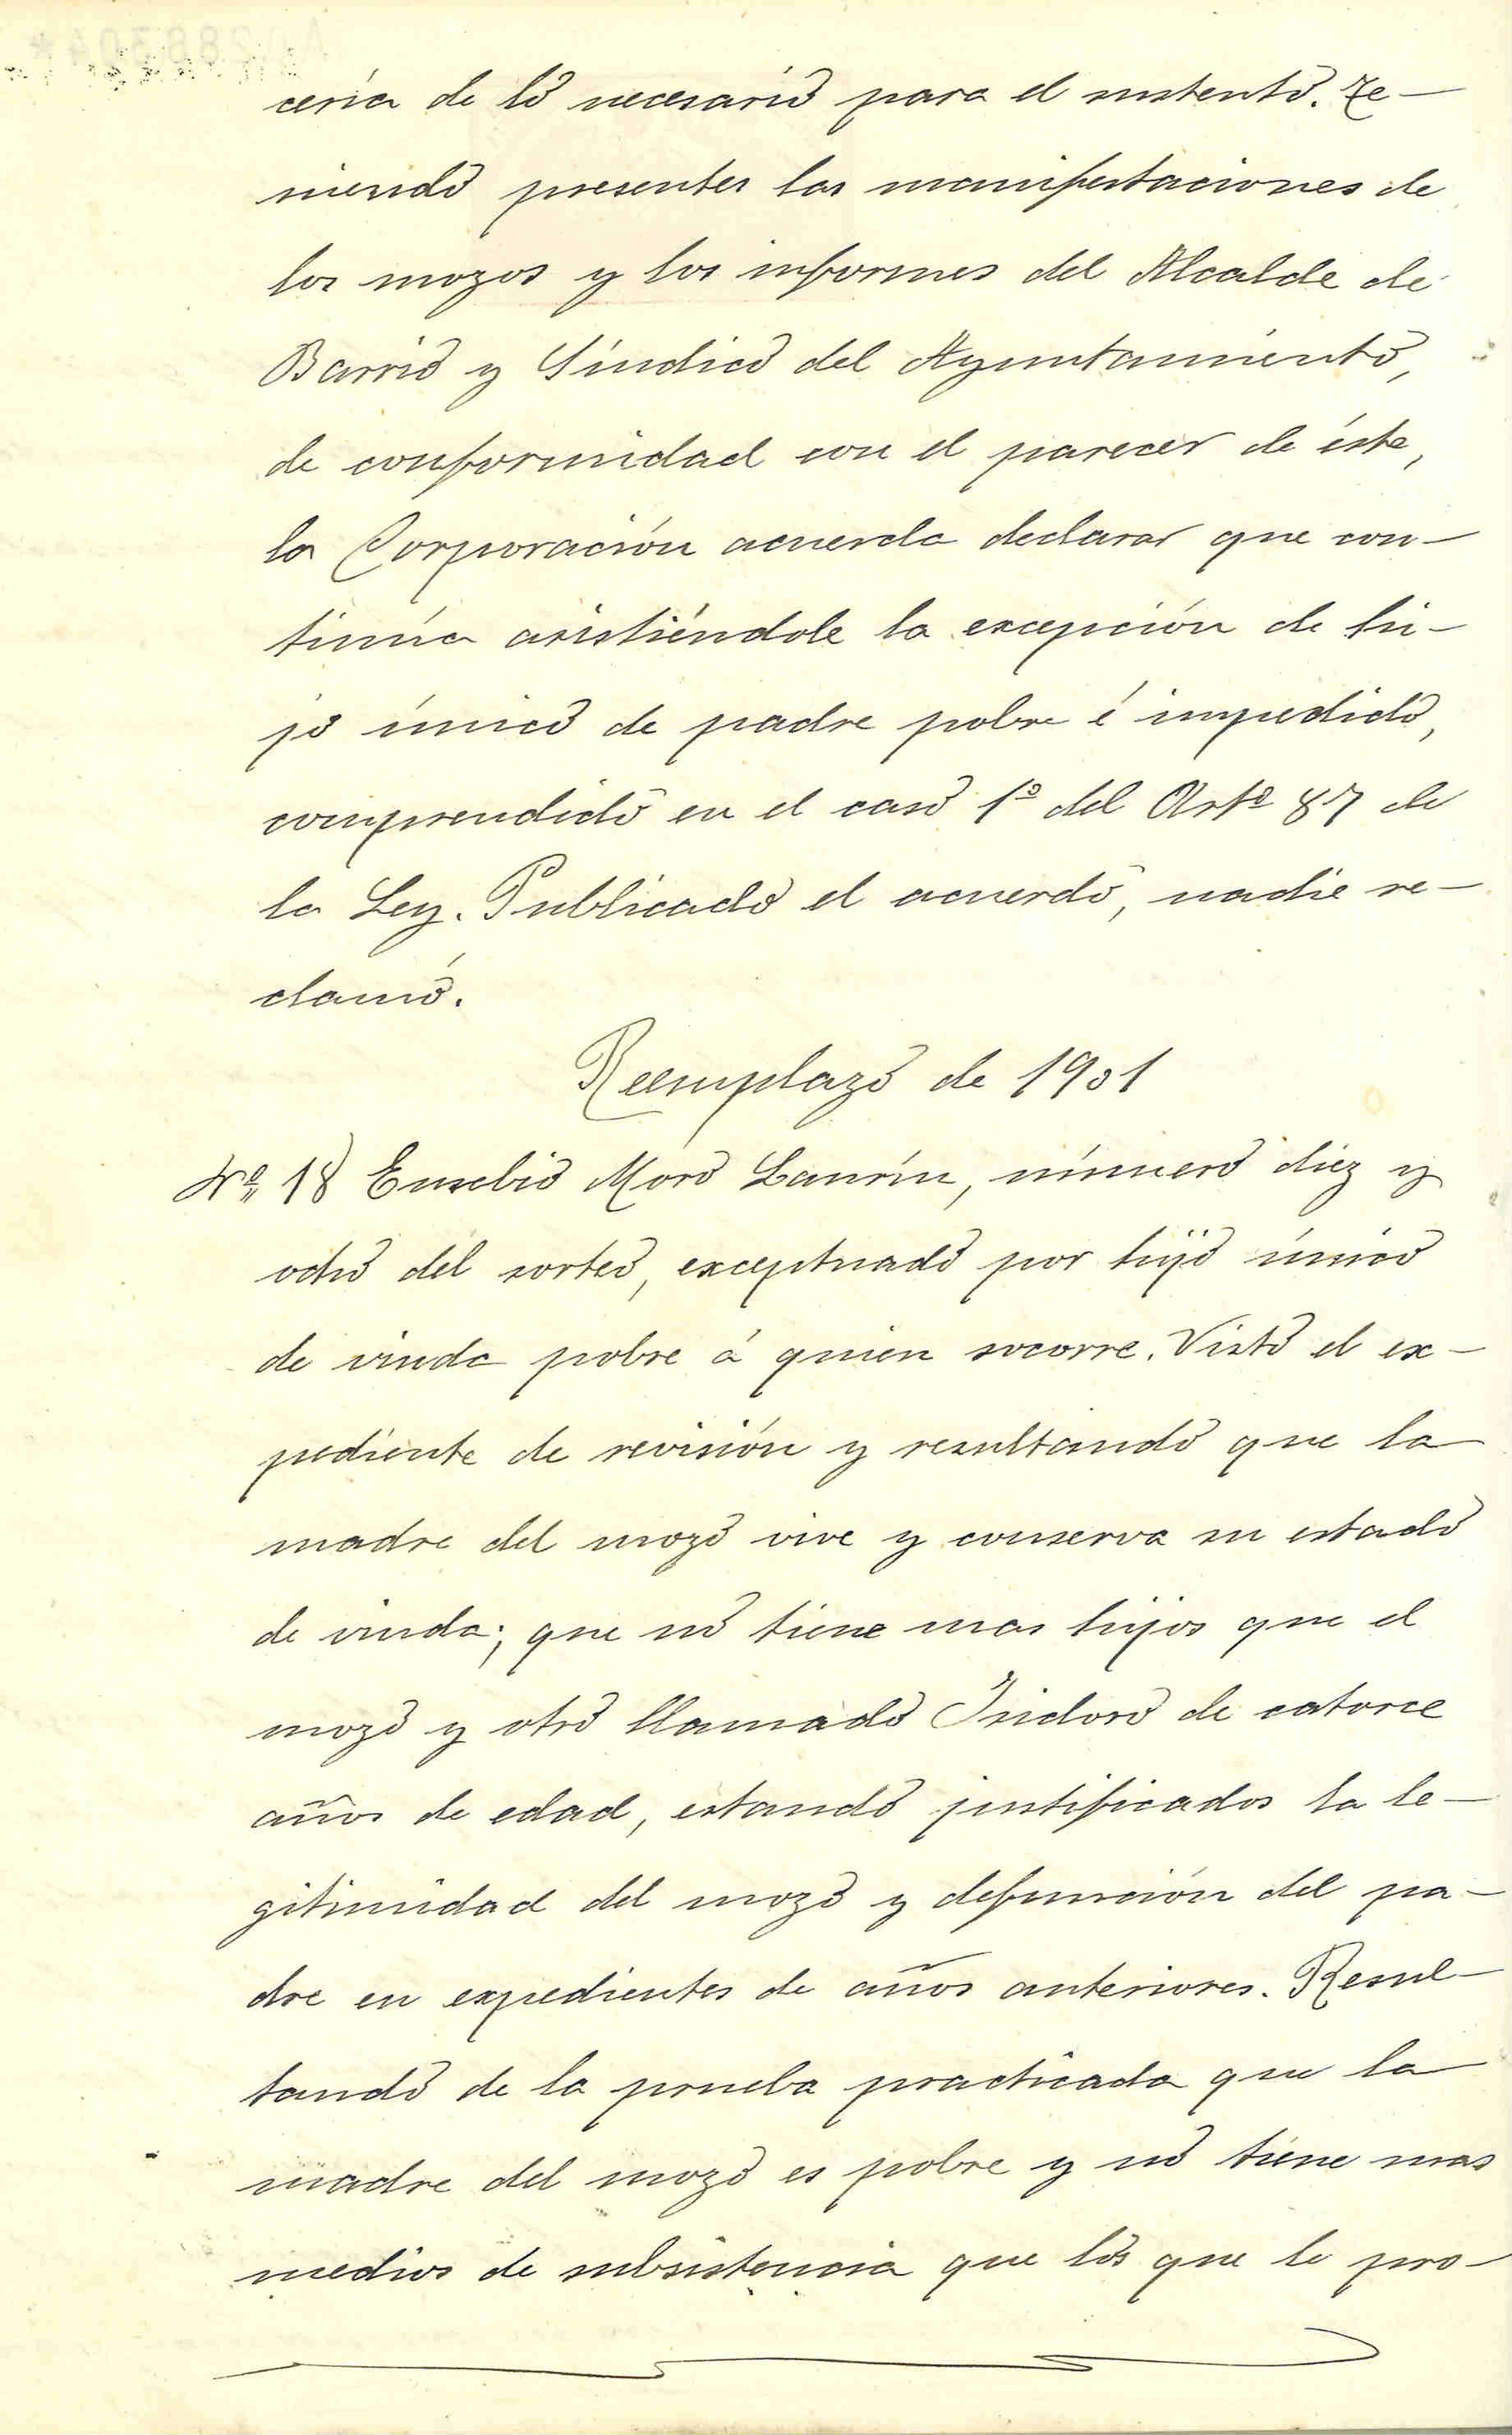 cería de lo necesario para el sustento. Te-
niendo presentes las manifestaciones de
los mozos y los informes del Alcalde de
Barrio y Síndico del Ayuntamiento,
de conformidad con el parecer de éste,
la Corporación acuerda declarar que con-
tinúa asistiéndole la excepción de hi-
jo único de padre pobre é impedido,
comprendido en el caso 1º del Artº 87 de
la Ley. Publicado el acuerdo, nadie re-
clamó.
Reemplazo de 1901
Nº 18 Eusebio Moro Laurín, número diez y
ocho del sorteo, exceptuado por hijo único
de viuda pobre á quien socorre. Visto el ex-
pediente de revisión y resultando que la
madre del mozo vive y conserva su estado
de viuda; que no tiene mas hijos que el
mozo y otro llamado Isidoro de catorce
años de edad, estando justificados la le-
gitimidad del mozo y defunción del pa-
dre en expedientes de años anteriores. Resul-
tando de la prueba practicada que la
madre del mozo es pobre y no tiene mas
medios de subsistencia que los que le pro-